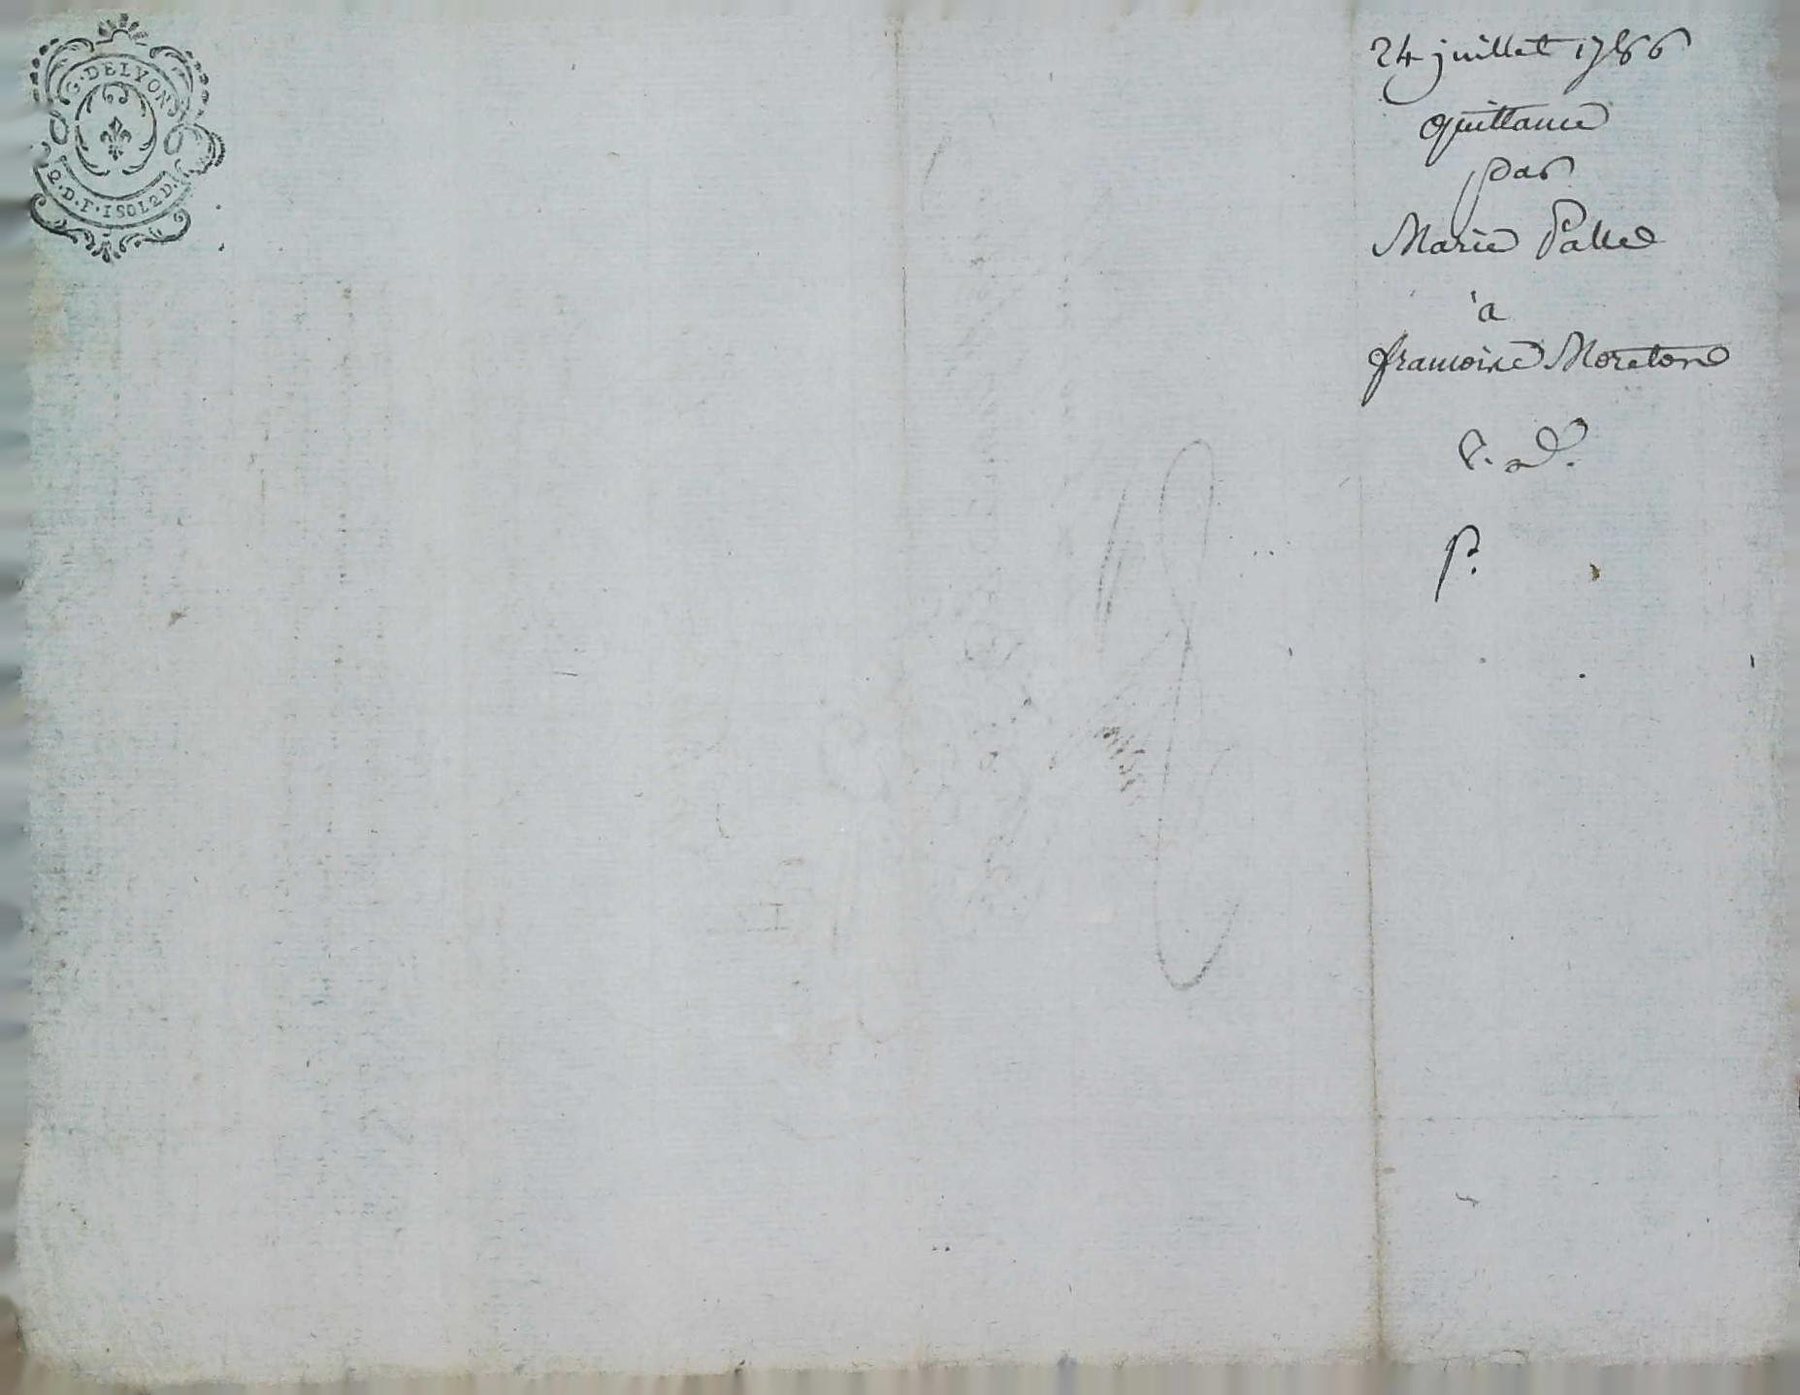 G. DE LYON
2. D. F. 1 SOL 2 D.
24 juillet 1786
Quittance
par
Marie Palle
à
françoise Moreton
P.